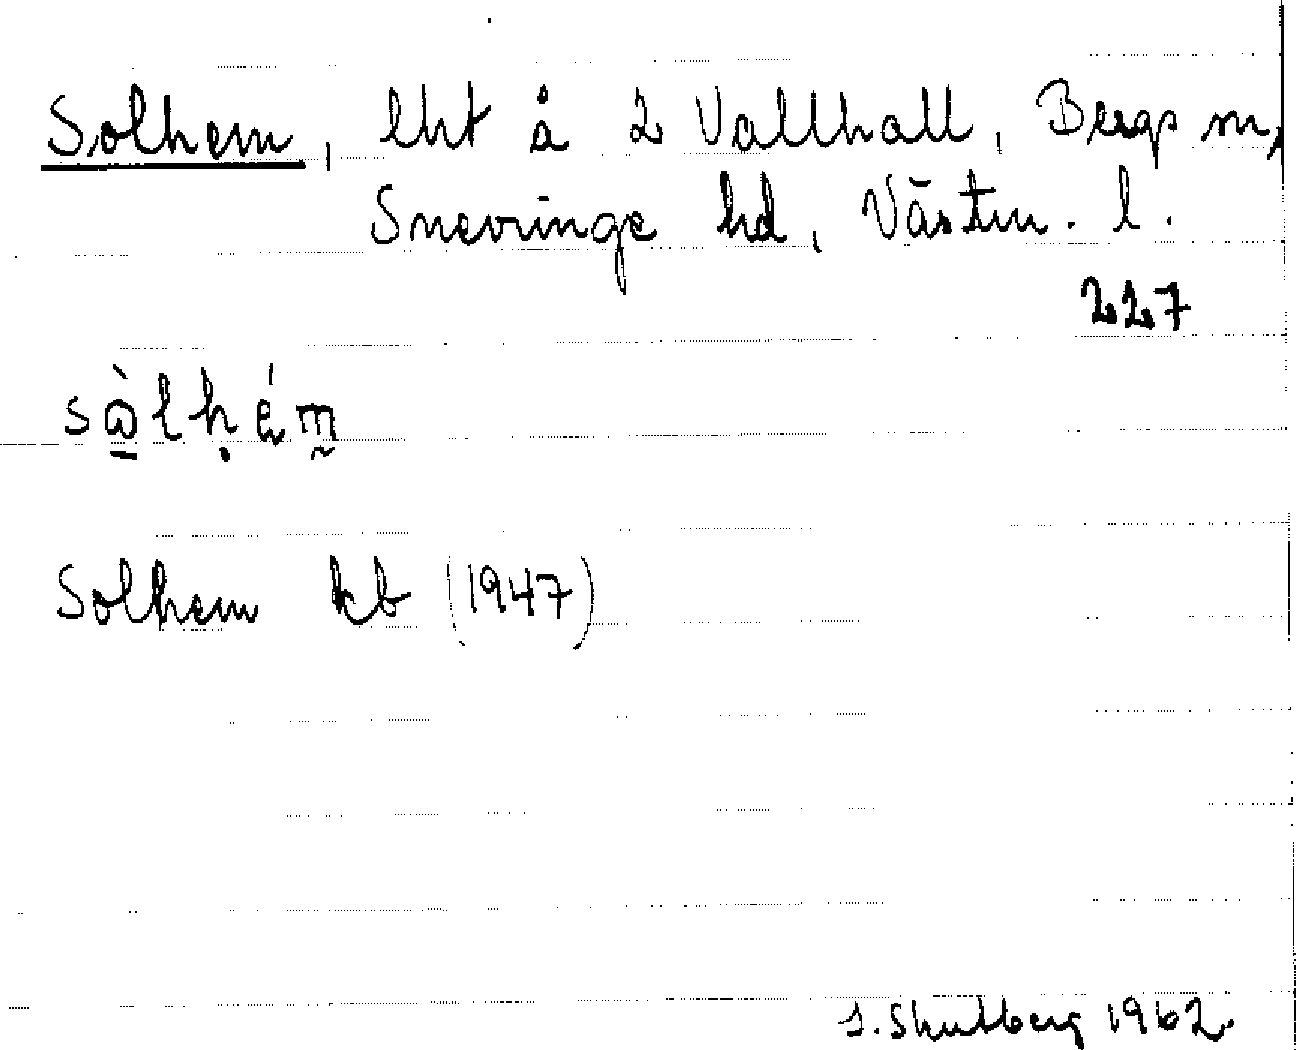 Solhem, lht å 2 Vallhall, Bergs sn,
Snevringe hd, Västm. l.
227
sò̱lḥém̰
Solhem kb (1947)
1962